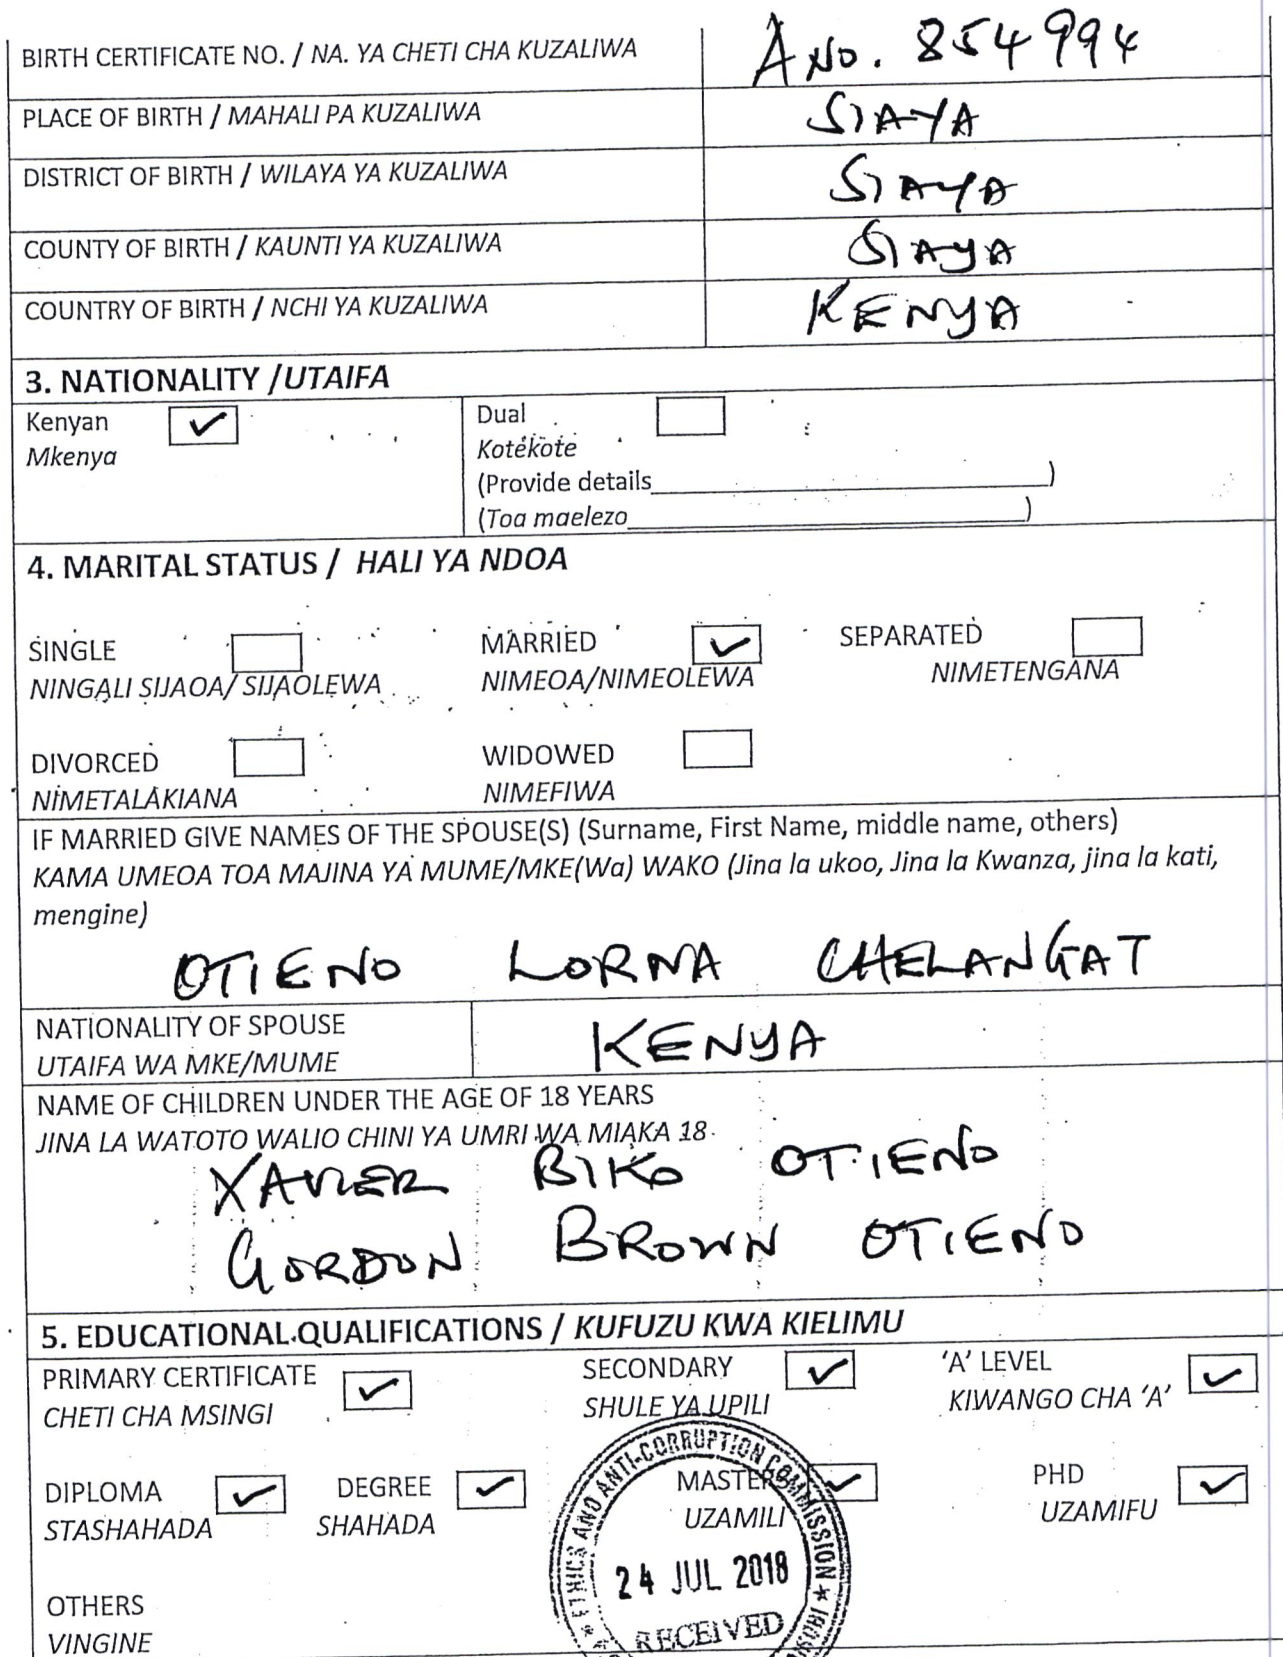 BIRTH CERTIFICATE NO. / NA. YA CHETI CHA KUZALIWA A NO. 854994
PLACE OF BIRTH / MAHALI PA KUZALIWA SIAYA
DISTRICT OF BIRTH / WILAYA YA KUZALIWA SIAYA
COUNTY OF BIRTH / KAUNTI YA KUZALIWA SIAYA
COUNTRY OF BIRTH / NCHI YA KUZALIWA KENYA
3. NATIONALITY /UTAIFA
Kenyan ✓ Dual
Mkenya Kotekote
(Provide details____________________)
(Toa maelezo____________________)
4. MARITAL STATUS / HALI YA NDOA
SINGLE MARRIED ✓ SEPARATED
NINGALI SIJAOA/ SIJAOLEWA NIMEOA/NIMEOLEWA NIMETENGANA
DIVORCED WIDOWED
NIMETALAKIANA NIMEFIWA
IF MARRIED GIVE NAMES OF THE SPOUSE(S) (Surname, First Name, middle name, others)
KAMA UMEOA TOA MAJINA YA MUME/MKE(Wa) WAKO (Jina la ukoo, Jina la Kwanza, jina la kati,
mengine)
OTIENO LORNA CHELANGAT
NATIONALITY OF SPOUSE KENYA
UTAIFA WA MKE/MUME
NAME OF CHILDREN UNDER THE AGE OF 18 YEARS
JINA LA WATOTO WALIO CHINI YA UMRI WA MIAKA 18
XAVIER BIKO OTIENO
GORDON BROWN OTIENO
5. EDUCATIONAL QUALIFICATIONS / KUFUZU KWA KIELIMU
PRIMARY CERTIFICATE ✓ SECONDARY ✓ 'A' LEVEL ✓
CHETI CHA MSINGI SHULE YA UPILI KIWANGO CHA 'A'
DIPLOMA ✓ DEGREE ✓ MASTERS ✓ PHD ✓
STASHAHADA SHAHADA UZAMILI UZAMIFU
ETHICS AND ANTI-CORRUPTION COMMISSION
24 JUL 2018
RECEIVED
OTHERS
VINGINE